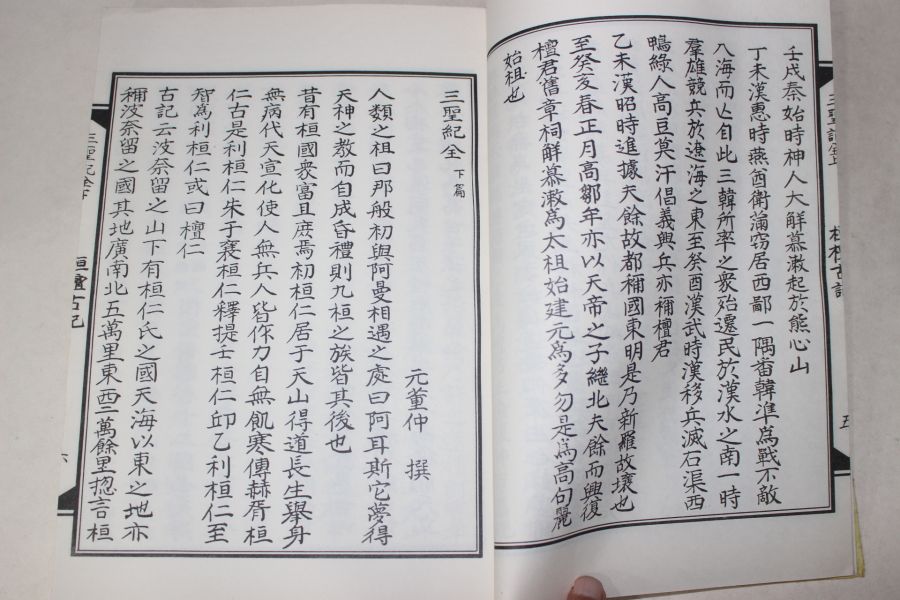 壬戌秦始時神人大解慕漱起於熊心山
丁未漢惠時燕酋衛滿窃居西鄙一隅番韓準為戰不敵
入海而亡自此三韓所率之衆殆遷民於漢水之南一時
羣雄競兵於遼海之東至癸酉漢武時漢移兵滅右渠西
鴨綠人高豆莫汗倡義興兵亦稱檀君
乙未漢昭時進據夫餘故都稱國東明是乃新羅故壤也
至癸亥春正月高鄒牟亦以天帝之子繼北夫餘而興復
檀君舊章祠解慕漱為太祖始建元為多勿是為高句麗
始祖也
三聖紀全 下篇
元董仲 撰
人類之祖曰那般初與阿曼相遇之處曰阿耳斯它夢得
天神之教而自成昏禮則九桓之族皆其後也
昔有桓國衆富且庶焉初桓仁居于天山得道長生舉身
無病代天宣化使人無兵人皆作力自無飢寒傳赫胥桓
仁古是利桓仁朱于襄桓仁釋提壬桓仁邱乙利桓仁至
智為利桓仁或曰檀仁
古記云波奈留之山下有桓仁氏之國天海以東之地亦
稱波奈留之國其地廣南北五萬里東西二萬餘里揔言桓
三聖紀全下
桓檀古記
六